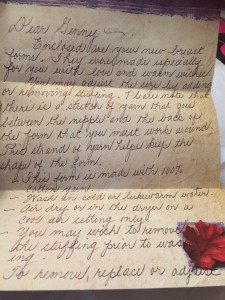 Dear Genney -
Enclosed are your new breast
forms. They were made especially
for you with love and warm wishes.
You may adjust the size by adding
or removing stuffing. Please note that
there is a stretch of yarn that goes
between the nipple and the back of
the form that you must work around.
This strand of yarn helps keep the
shape of the form.
This form is made with 100%
cotton yarn.
- Wash in cold or lukewarm water
- Air dry or in the dryer on a
cool air setting only.
- You may wish to remove
the stuffing prior to wash-
ing.
To remove, replace or adjust